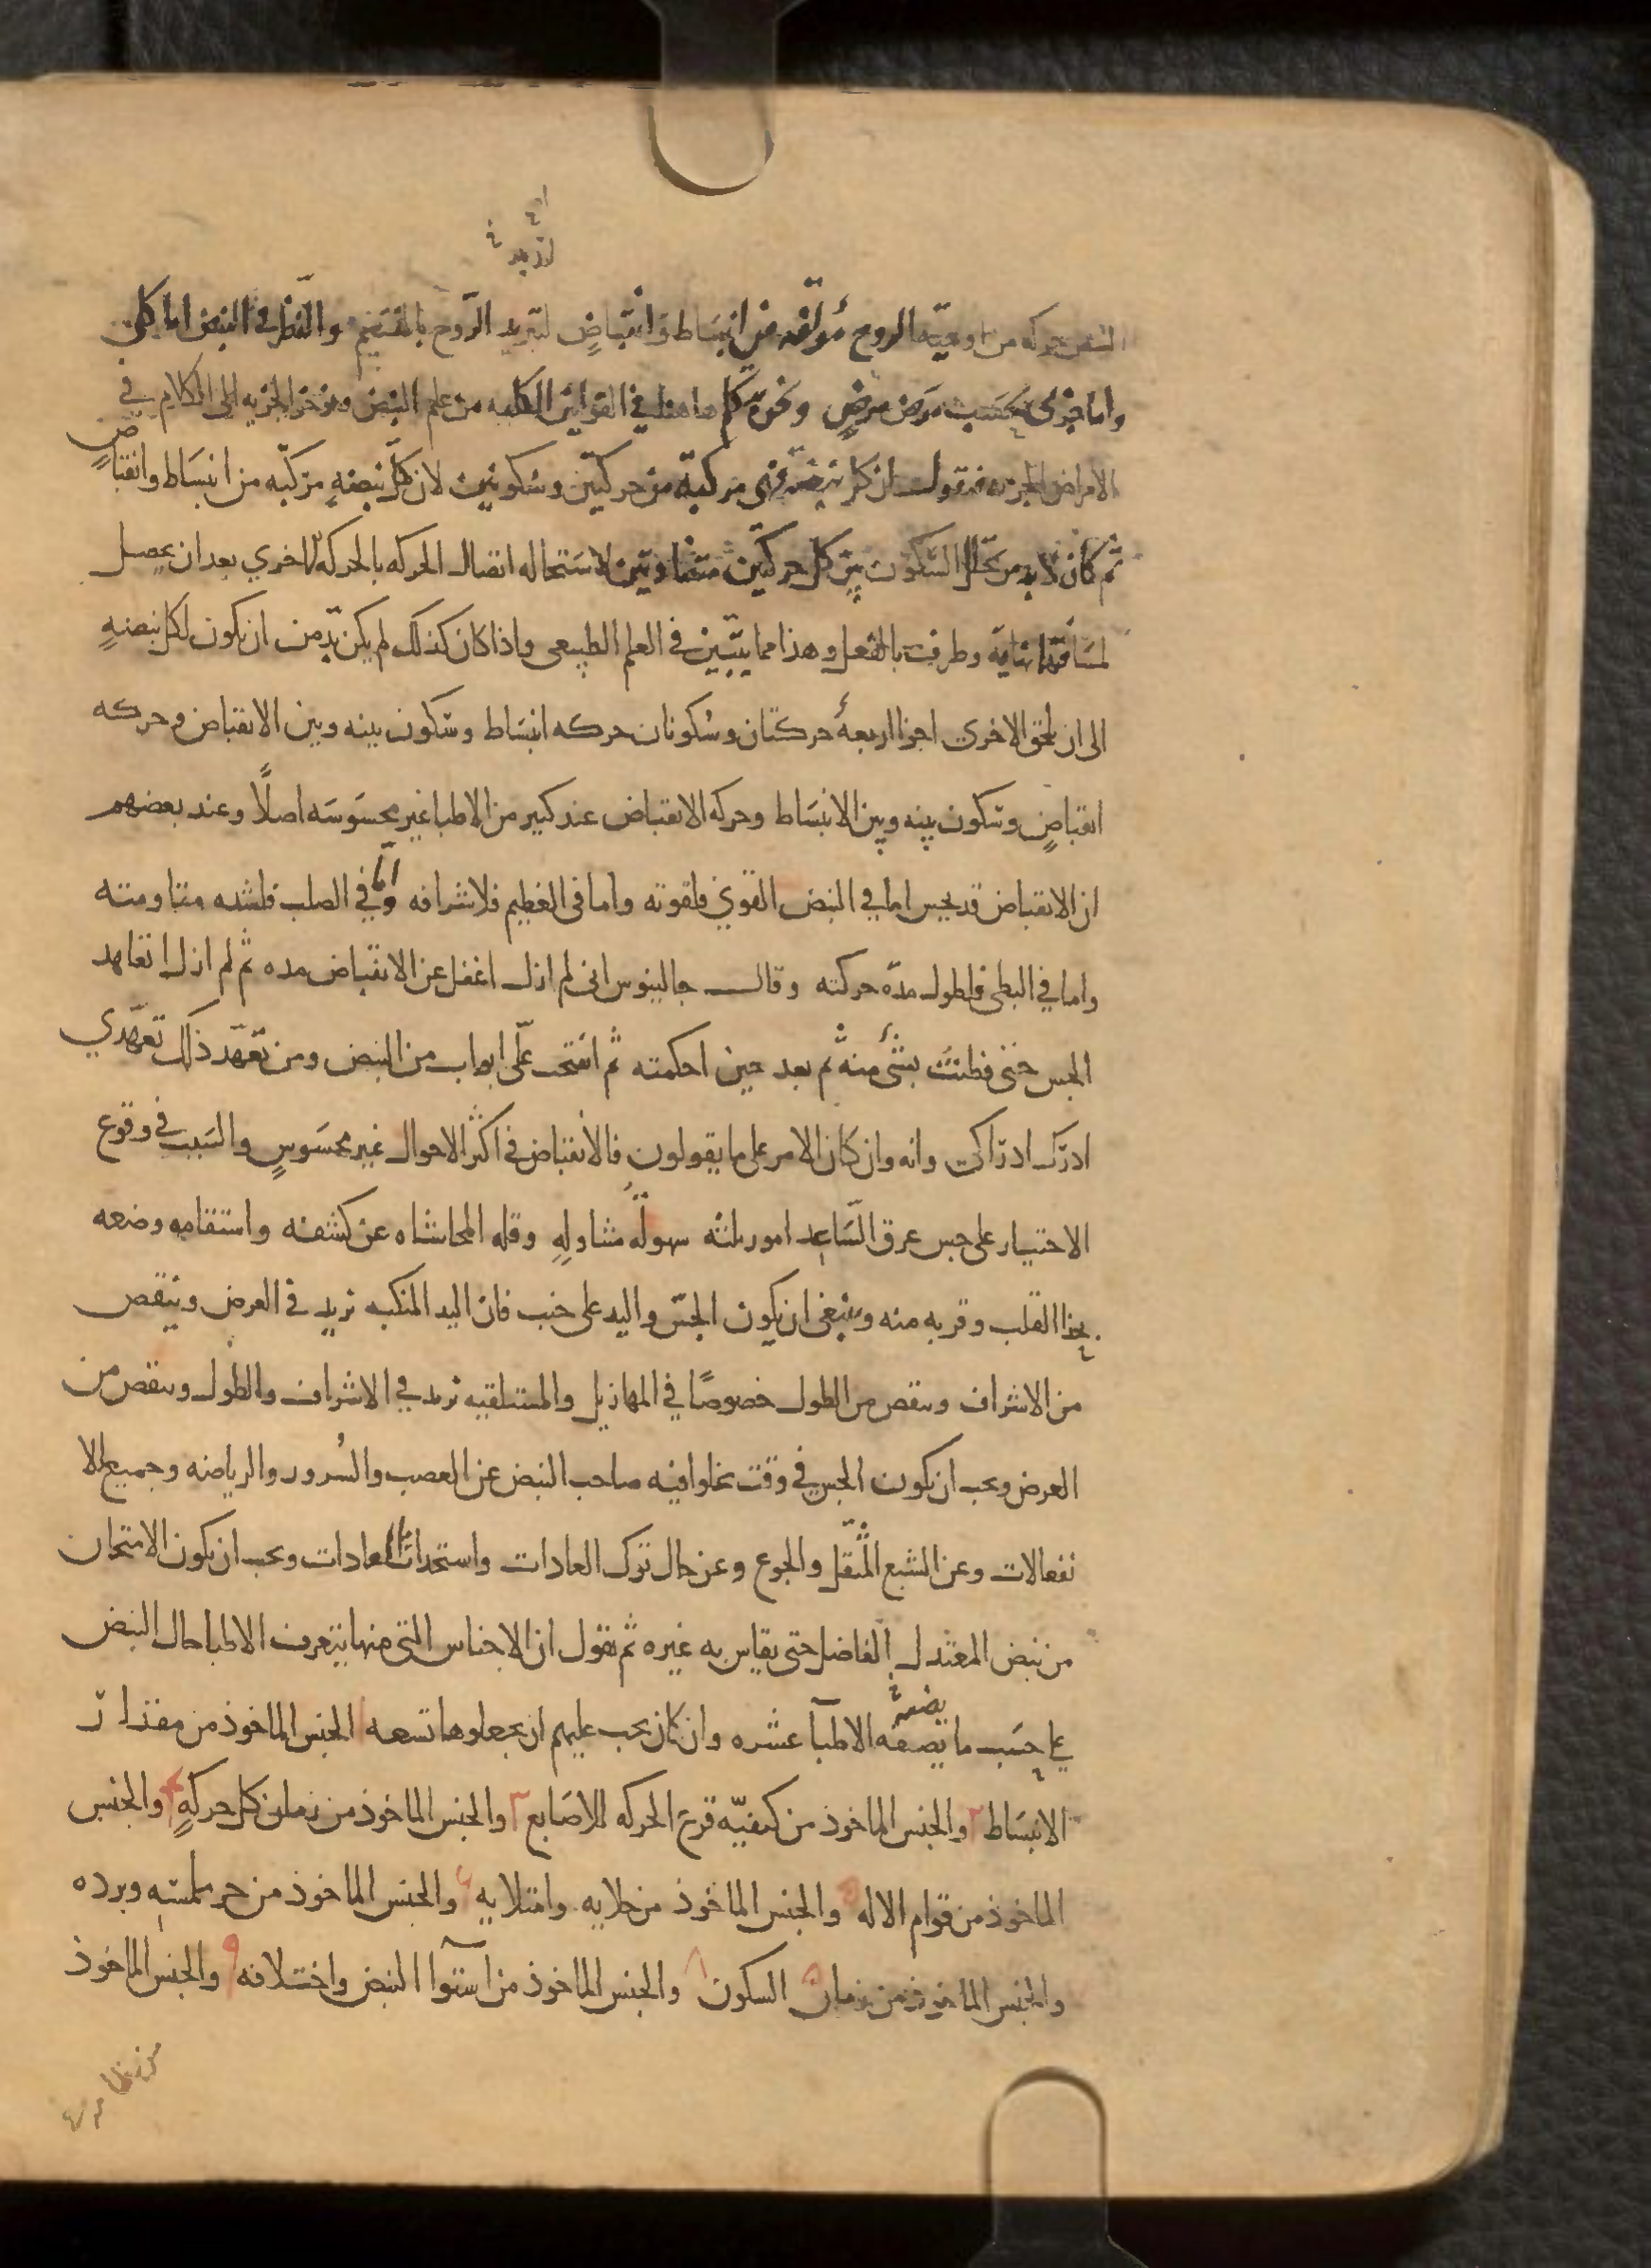 النبض حركه من اوعيّة الروح مؤلّفه من انبساط وانقباضٍ لتبريد الرّوح بالنسيم والنّظر في النبض اما كلى
واما جزى بحسب مرض مرضٍ ونحن نتكلم هاهنا في القوانين الكليه من علم النبض ونوخر الجزيه الى الكلام في
الامراض الجزيه فنقول ان كل نبضه فهى مركبّه من حركتين وسكونين لان كلّ نبضهٍ مركّبه من انبساط وانقباضٍ
ثم كان لا بد من تخلّل السّكون بين كل حركتين متضادتين لاستحاله اتصال الحركه بالحركه الاخري بعد ان يحصل
لمسافتها نهاية وطرف بالفعل وهذا مما يتبيّن في العلم الطبيعى واذا كان كذلك لم يكن بدّ من ان يكون لكل نبضهٍ
الى ان تلحق الاخرى اجزا اربعهٌ حركتان وسكونان حركه انبساط وسكون بينه وبين الانقباض وحركه
انقباضٍ وسكون بينه وبين الانبساط وحركه الانقباض عند كبير من الاطبا غير محسوسه اصلاً وعند بعضهم
ان الانقباض قد يحس اما في النبض القوي فلقوته واما فى العظيم فلاشرافه واما في الصلب فلشده مقاومته
واما في البطى فلطول مدّه حركته وقال جالينوس انى لم ازل اغفل عن الانقباض مده ثم لم ازل اتعاهد
الجس حتى فطنتُ بشىٔ منه ثم بعد حين احكمته ثم انفتح علّى ابواب من النبض ومن تعّهد ذلك تعّهدي
ادرك ادراكى وانه وان كان الامر على ما يقولون فالانقباض في اكثر الاحوال غير محسوسٍ والسّبب في وقوع
الاختيار على جس عرق السّاعد امور ثلثه سهولة متناولهِ وقله المحاشاه عن كشفه واستقامه وضعه
بحذا القلب وقربه منه وينبغى ان يكون الجسّ واليد على جنب فان اليد المنكبه تزيد في العرض وينقص
من الاشراف وينقص من الطول خصوصًا في المهازيل والمستلقيه تزيد في الاشراف والطول وينقص من
العرض ويجب ان يكون الجس في وقت يخلوا فيه صاحب النبض عن الغضب والسُرور والرياضه وجميع الا
نفعالات وعن الشبع المثّقل والجوع وعن حال ترك العادات واستحداث العادات ويجب ان يكون الامتحان
من نبض المعتدل الفاضل حتى يقاس به غيره ثم نقول ان الاجناس التى منها يتعرف الاطبا حال النبض
علي حسب ما يصفه الاطبآ عشره وان كان يجب عليهم ان يجعلوها تسعه الجنس الماخوذ من مقدار
الانبساط ٢ والجنس الماخوذ من كيفيّه قرع الحركه للاصابع ٣ والجنس الماخوذ من زمان كل حركهٍ ٤ والجنس
الماخوذ من قوام الاله ٥ والجنس الماخوذ من خلايه وامتلايه ٦ والجنس الماخوذ من حر ملمسه وبرده
والجنس الماخوذ من زمان السكون ٨ والجنس الماخوذ من استوآ النبض واختلافه ٩ والجنس الماخوذ